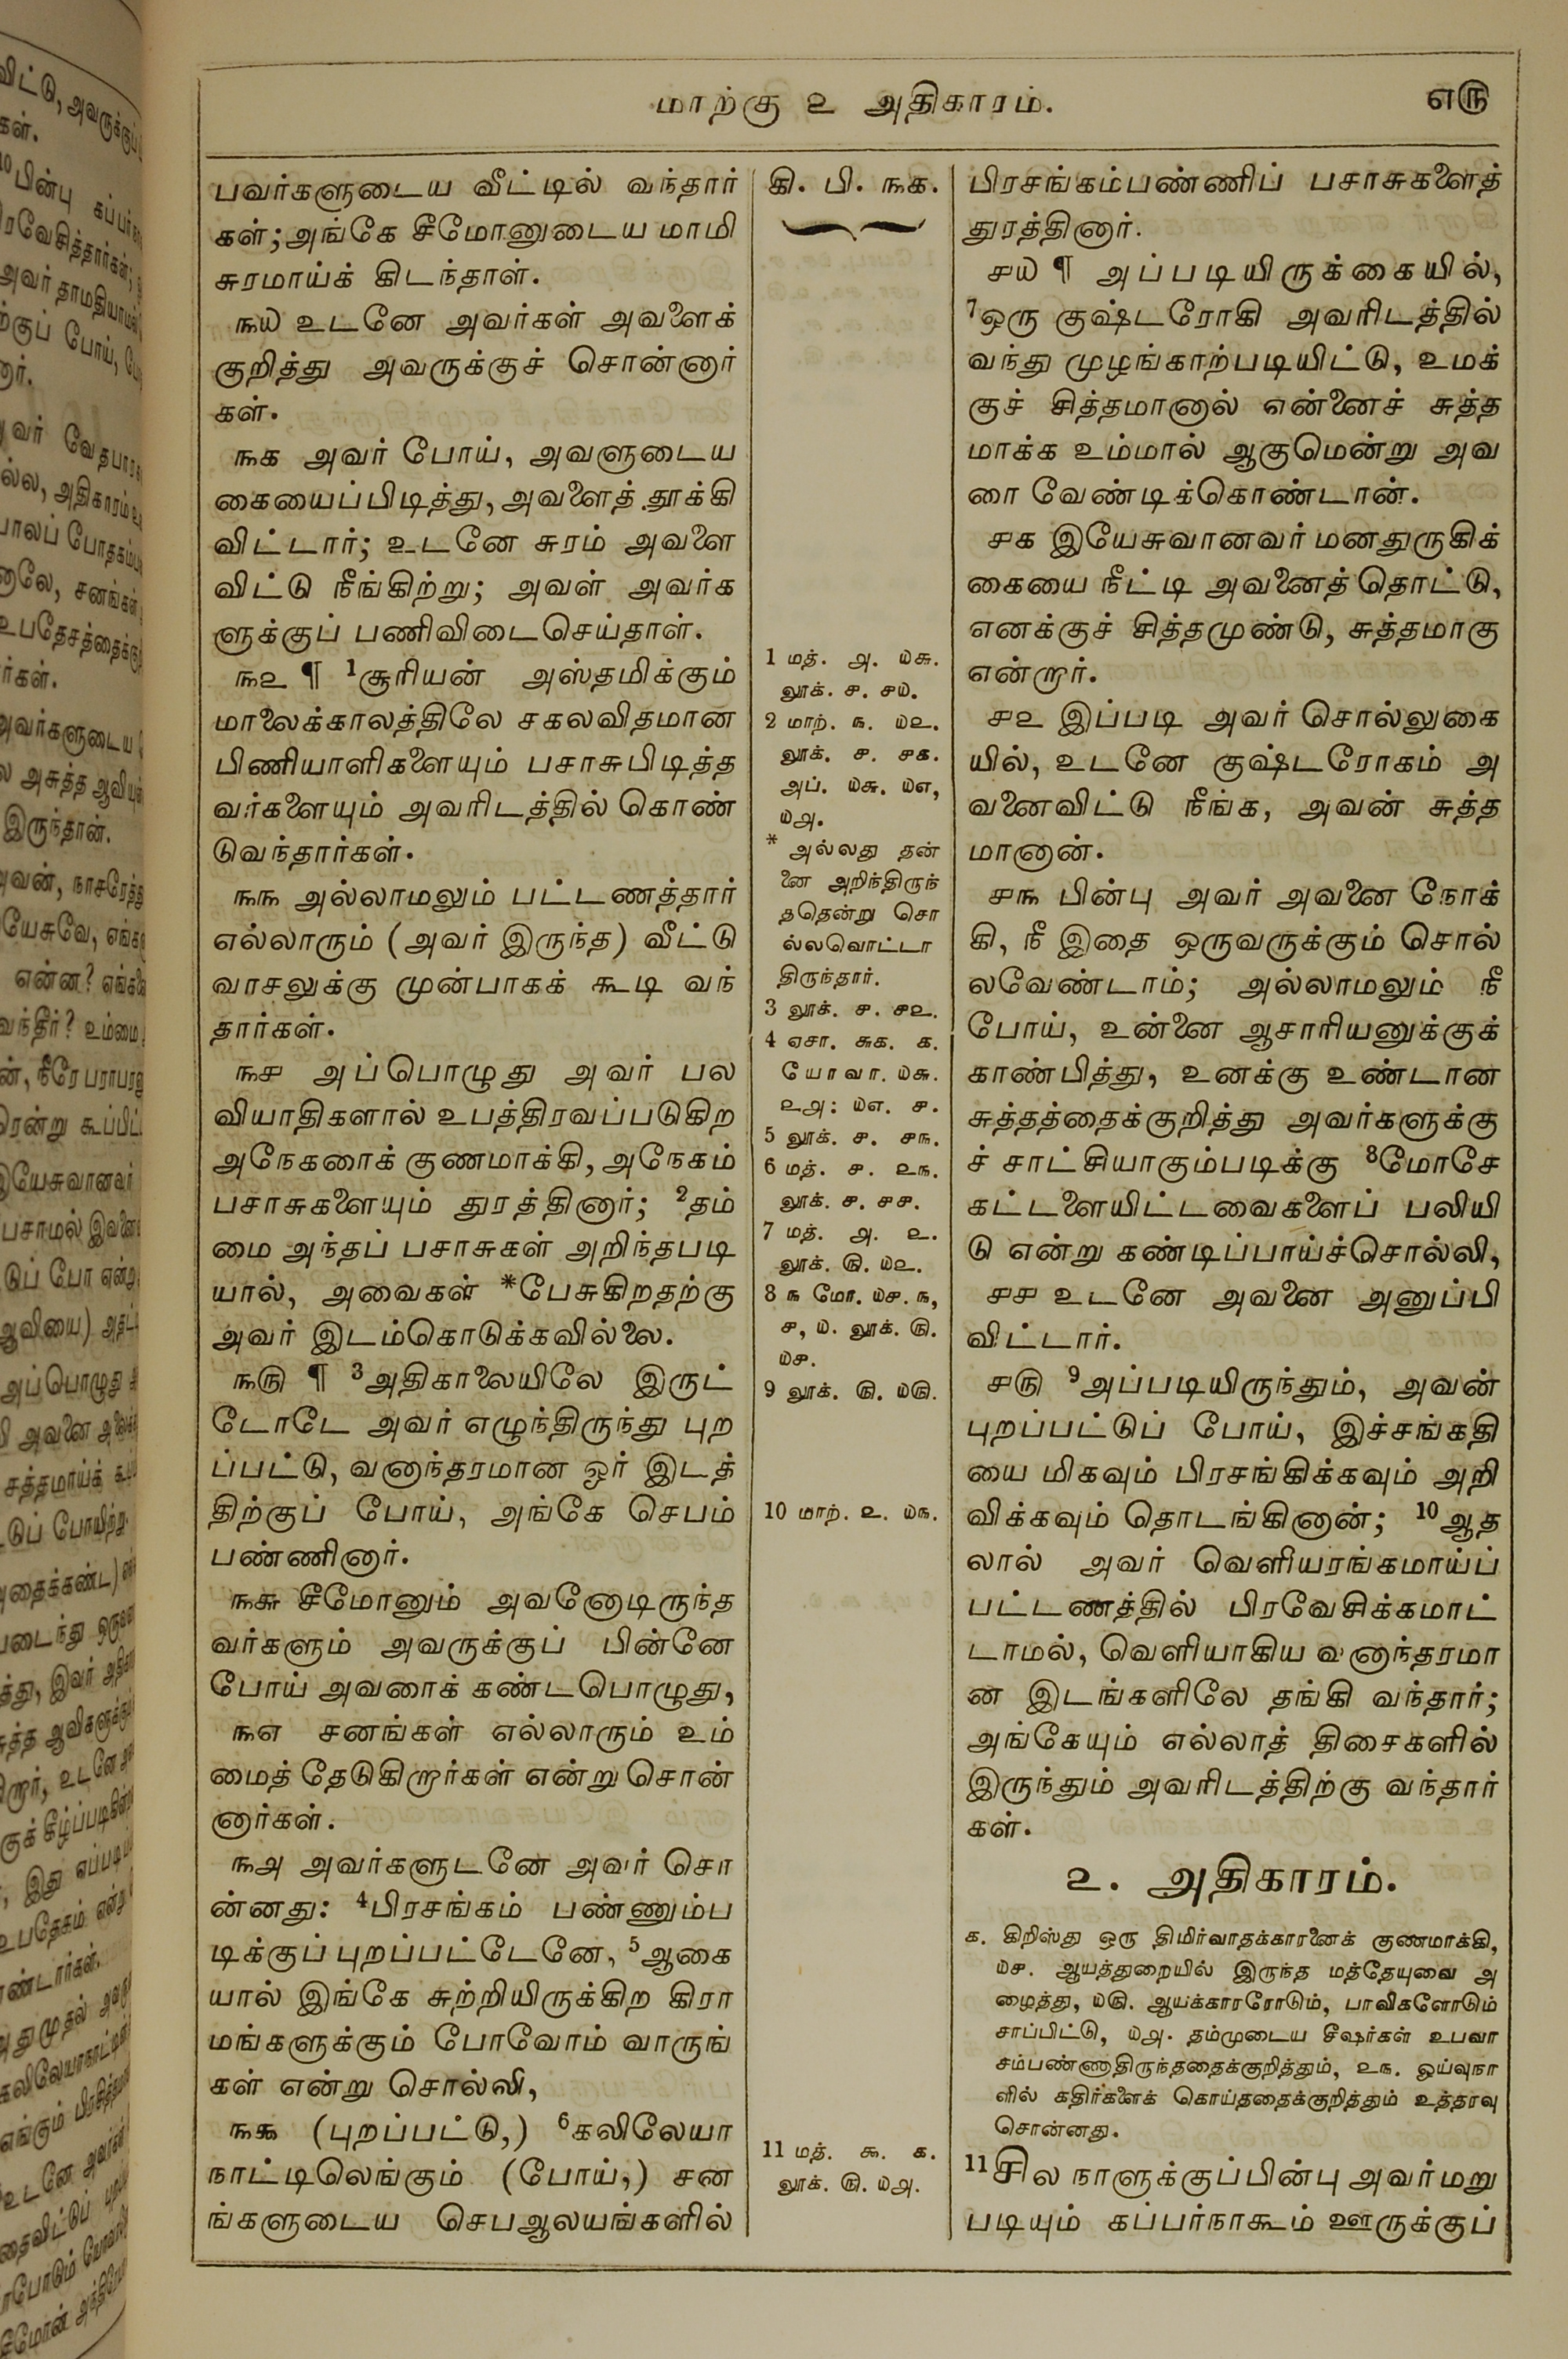 மாற்கு ௨ அதிகாரம்.
௭௫
பவர்களுடைய வீட்டில் வந்தார்
கள்; அங்கே சீமோனுடைய மாமி
சுரமாய்க் கிடந்தாள்.
௩௰ உடனே அவர்கள் அவளைக்
குறித்து அவருக்குச் சொன்னார்
கள்.
௩௧ அவர் போய், அவளுடைய
கையைப்பிடித்து, அவளைத் தூக்கி
விட்டார்; உடனே சுரம் அவளை
விட்டு நீங்கிற்று; அவள் அவர்க
ளுக்குப் பணிவிடைசெய்தாள்.
௩௨ ¶ ¹சூரியன் அஸ்தமிக்கும்
மாலைக்காலத்திலே சகலவிதமான
பிணியாளிகளையும் பசாசுபிடித்த
வர்களையும் அவரிடத்தில் கொண்
டுவந்தார்கள்.
௩௩ அல்லாமலும் பட்டணத்தார்
எல்லாரும் (அவர் இருந்த) வீட்டு
வாசலுக்கு முன்பாகக் கூடி வந்
தார்கள்.
௩௪ அப்பொழுது அவர் பல
வியாதிகளால் உபத்திரவப்படுகிற
அநேகரைக் குணமாக்கி, அநேகம்
பசாசுகளையும் துரத்தினார்; ²தம்
மை அந்தப் பசாசுகள் அறிந்தபடி
யால், அவைகள் *பேசுகிறதற்கு
அவர் இடம்கொடுக்கவில்லை.
௩௫ ¶ ³அதிகாலையிலே இருட்
டோடே அவர் எழுந்திருந்து புற
ப்பட்டு, வனாந்தரமான ஓர் இடத்
திற்குப் போய், அங்கே செபம்
பண்ணினார்.
௩௬ சீமோனும் அவனோடிருந்த
வர்களும் அவருக்குப் பின்னே
போய் அவரைக் கண்டபொழுது,
௩௭ சனங்கள் எல்லாரும் உம்
மைத் தேடுகிறார்கள் என்று சொன்
னார்கள்.
௩௮ அவர்களுடனே அவர் சொ
ன்னது: ⁴பிரசங்கம் பண்ணும்ப
டிக்குப் புறப்பட்டேனே, ⁵ஆகை
யால் இங்கே சுற்றியிருக்கிற கிரா
மங்களுக்கும் போவோம் வாருங்
கள் என்று சொல்லி,
௩௯ (புறப்பட்டு,) ⁶கலிலேயா
நாட்டிலெங்கும் (போய்,) சன
ங்களுடைய செபஆலயங்களில்
கி. பி. ௩௧.
1 மத். ௮. ௰௬.
லூக். ௪. ௪௰.
2 மாற். ௩. ௰௨.
லூக். ௪. ௪௧.
அப். ௰௬. ௰௭,
௰௮.
* அல்லது தன்
னை அறிந்திருந்
ததென்று சொ
ல்லவொட்டா
திருந்தார்.
3 லூக். ௪. ௪௨.
4 ஏசா. ௬௧. ௧.
யோவா. ௰௬.
௨௮: ௰௭. ௪.
5 லூக். ௪. ௪௩.
6 மத். ௪. ௨௩.
லூக். ௪. ௪௪.
7 மத். ௮. ௨.
லூக். ௫. ௰௨.
8 ௩ மோ. ௰௪. ௩,
௪, ௰. லூக். ௫.
௰௪.
9 லூக். ௫. ௰௫.
10 மாற். ௨. ௰௩.
11 மத். ௯. ௧.
லூக். ௫. ௰௮.
பிரசங்கம்பண்ணிப் பசாசுகளைத்
துரத்தினார்.
௪௰ ¶ அப்படியிருக்கையில்,
⁷ஒரு குஷ்டரோகி அவரிடத்தில்
வந்து முழங்காற்படியிட்டு, உமக்
குச் சித்தமானால் என்னைச் சுத்த
மாக்க உம்மால் ஆகுமென்று அவ
ரை வேண்டிக்கொண்டான்.
௪௧ இயேசுவானவர் மனதுருகிக்
கையை நீட்டி அவனைத் தொட்டு,
எனக்குச் சித்தமுண்டு, சுத்தமாகு
என்றார்.
௪௨ இப்படி அவர் சொல்லுகை
யில், உடனே குஷ்டரோகம் அ
வனைவிட்டு நீங்க, அவன் சுத்த
மானான்.
௪௩ பின்பு அவர் அவனை நோக்
கி, நீ இதை ஒருவருக்கும் சொல்
லவேண்டாம்; அல்லாமலும் நீ
போய், உன்னை ஆசாரியனுக்குக்
காண்பித்து, உனக்கு உண்டான
சுத்தத்தைக்குறித்து அவர்களுக்கு
ச் சாட்சியாகும்படிக்கு ⁸மோசே
கட்டளையிட்டவைகளைப் பலியி
டு என்று கண்டிப்பாய்ச்சொல்லி,
௪௪ உடனே அவனை அனுப்பி
விட்டார்.
௪௫ ⁹அப்படியிருந்தும், அவன்
புறப்பட்டுப் போய், இச்சங்கதி
யை மிகவும் பிரசங்கிக்கவும் அறி
விக்கவும் தொடங்கினான்; ¹⁰ஆத
லால் அவர் வெளியரங்கமாய்ப்
பட்டணத்தில் பிரவேசிக்கமாட்
டாமல், வெளியாகிய வனாந்தரமா
ன இடங்களிலே தங்கி வந்தார்;
அங்கேயும் எல்லாத் திசைகளில்
இருந்தும் அவரிடத்திற்கு வந்தார்
கள்.
௨. அதிகாரம்.
௧. கிறிஸ்து ஒரு திமிர்வாதக்காரனைக் குணமாக்கி,
௰௪. ஆயத்துறையில் இருந்த மத்தேயுவை அ
ழைத்து, ௰௫. ஆயக்காரரோடும், பாவிகளோடும்
சாப்பிட்டு, ௰௮. தம்முடைய சீஷர்கள் உபவா
சம்பண்ணாதிருந்ததைக்குறித்தும், ௨௩. ஓய்வுநா
ளில் கதிர்களைக் கொய்ததைக்குறித்தும் உத்தரவு
சொன்னது.
¹¹சில நாளுக்குப்பின்பு அவர்மறு
படியும் கப்பர்நாகூம் ஊருக்குப்